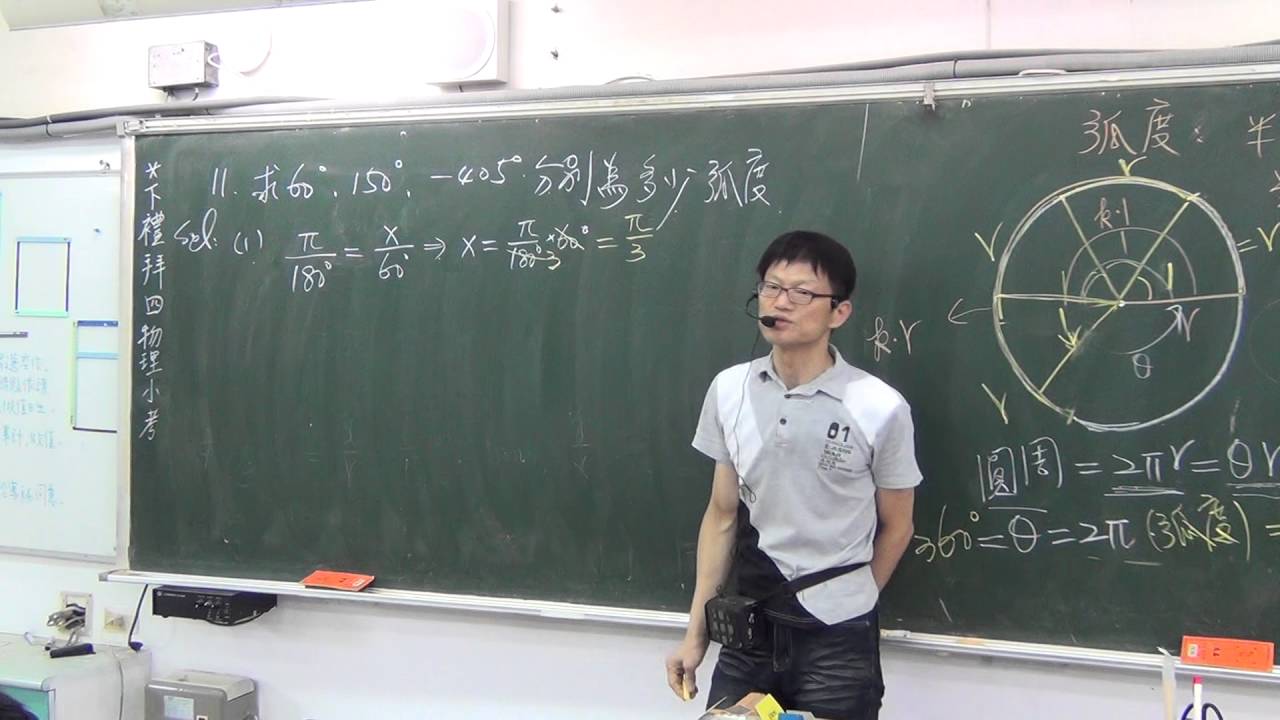 *下禮拜四物理小考
11. 求60°、150°、-405°分別為多少弧度
Sol: (1) π/180° = x/60° ⇒ x = π/180° × 60° = π/3
弧度: 半
r
k·1
r
1
= r
1
r
k·r
θ
r
圓周 = 2πr = θr
360° = θ = 2π (弧度) =
01